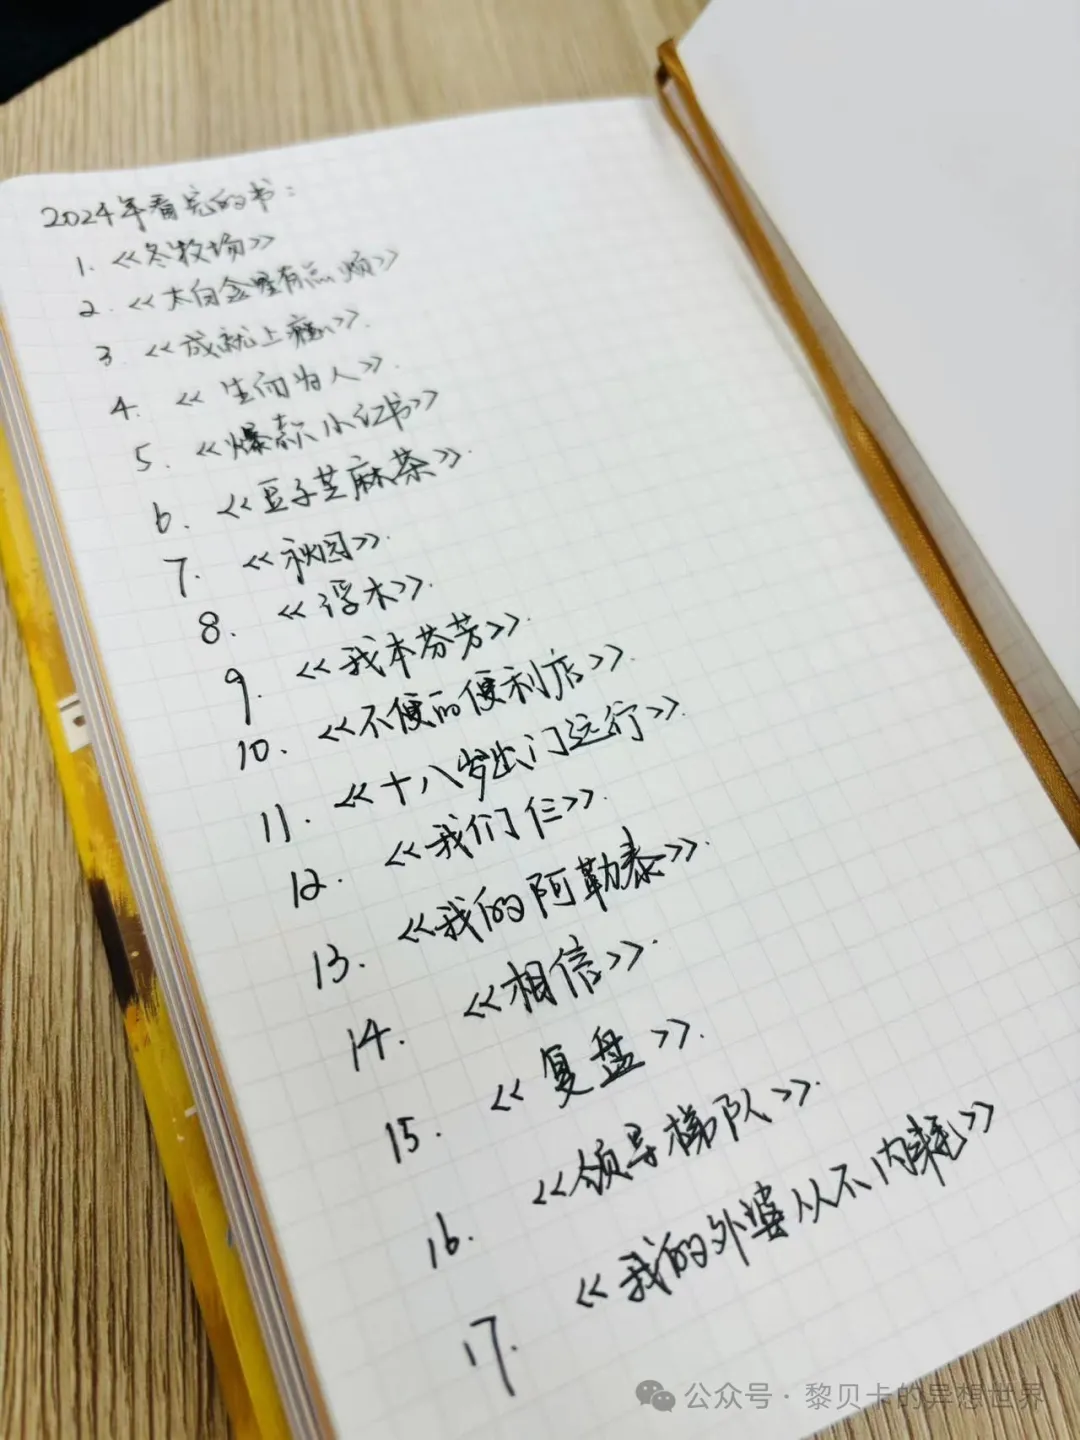 2024年看完的书:
1. <<冬牧场>>
2. <<太白金星有点烦>>
3. <<成就上瘾>>.
4. <<生而为人>>.
5. <<爆款小红书>>
6. <<豆子芝麻茶>>.
7. <<秋园>>.
8. <<浮木>>.
9. <<我本芬芳>>.
10. <<不便的便利店>>.
11. <<十八岁出门远行>>.
12. <<我们仨>>.
13. <<我的阿勒泰>>.
14. <<相信>>.
15. <<复盘>>.
16. <<领导梯队>>.
17. <<我的外婆从不内耗>>
公众号·黎贝卡的异想世界